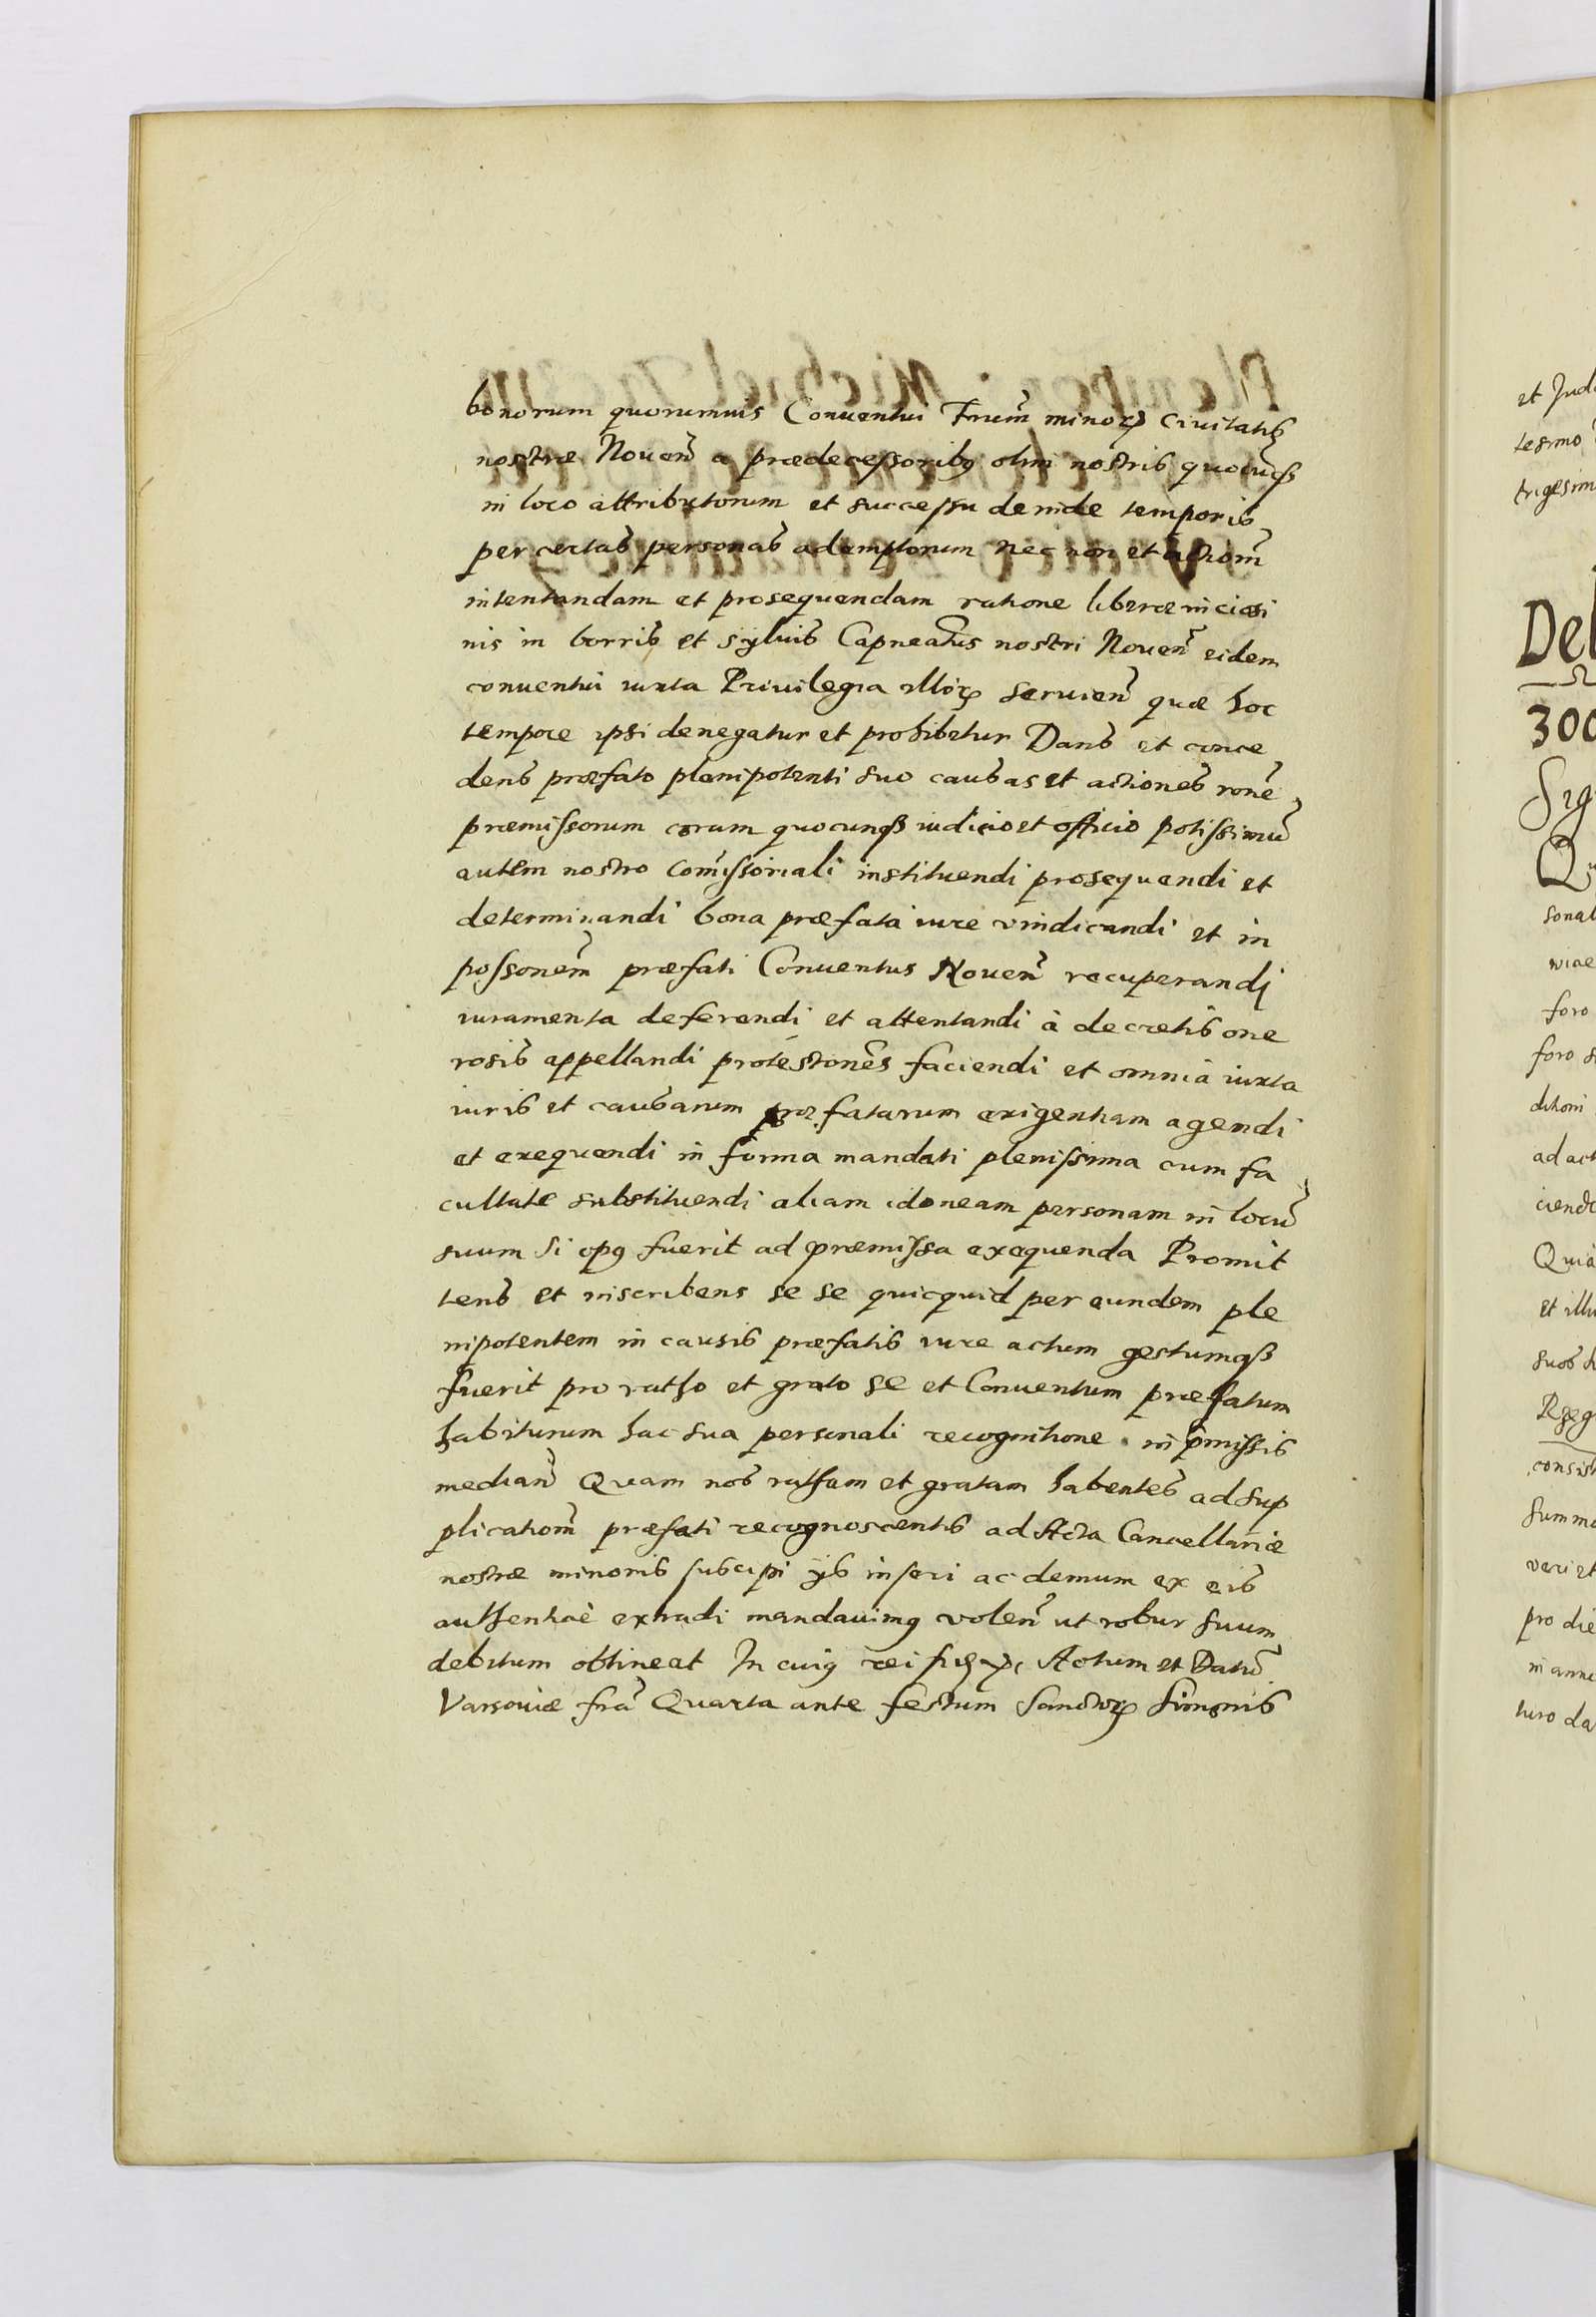 bonorum quorumuis Conuentui Frum̃ minorꝝ Ciuitatis
nostræ Nouen̄ a prædecessoribꝰ olim nostris quocũqȝ
in loco attributorum et successu deinde temporis
per certas personas ademptorum nec non et actiom̃
intentandam et prosequendam ratione liberæ inciæsi
nis in borris et syluis Capneatus nostri Nouen̄ eidem
conuentui iuxta Priuilegia illorꝝ seruien̄ quæ hoc
tempore ipsi denegatur et prohibetur Dans et conce
dens præfato plenipotenti suo causas et actiones rone̅
præmissorum coram quocunqȝ iudicio et officio potissimũ
autem nostro Com̃issoriali instituendi prosequendi et
determinandi bona præfata iure vindicandi et in
possonem̃ præfati Conuentus Nouen̄ recuperandi
iuramenta deferendi et attentandi à decretis one
rosis appellandi protestones̃ faciendi et omnia iuxta
iuris et causarum præfatarum exigentiam agendi
et exequendi in forma mandati plenissima cum fa
cultate substituendi aliam idoneam personam in locũ
suum si opꝰ fuerit ad præmissa exequenda Promit
tens et inscribens se se quicquid per eundem ple
nipotentem in causis præfatis iure actum gestumqȝ
fuerit pro ratho et grato se et Conuentum præfatum
habiturum hac sua personali recognitione in p̃missis
median̄ Quam nos ratham et gratam habentes ad sup
plicatiom̃ præfati recognoscentis ad Acta Cancellariæ
nostræ minoris suscipi ijs inseri ac demum ex eis
authentice extradi mandauimꝰ volen̄ ut robur suum
debitum obtineat In cuiꝰ rei Actum et Datũ
Varsouiæ fr̃a Quarta ante festum Sanctorꝝ Simonis
et Jud
tesimo
trigesim
Del
300
Sig
sonal
viae
foro
foro
ditioni
ad act
ciend
Quia
et illu
suos
Reg
consist
summa
veri et
pro die
in anno
turo da